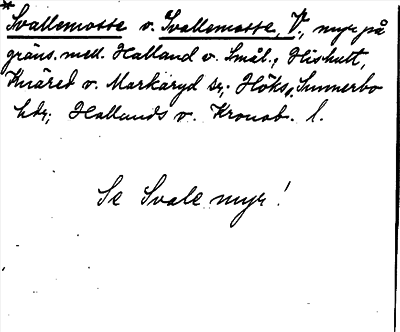 *Svallemosse o. Svallemosse, V., myr på
gräns. mell. Halland o. Smål., Hishult,
Knäred o. Markaryd sr; Höks, Sunnerbo
hdr; Hallands o. Kronob. l.
Se Svale myr!